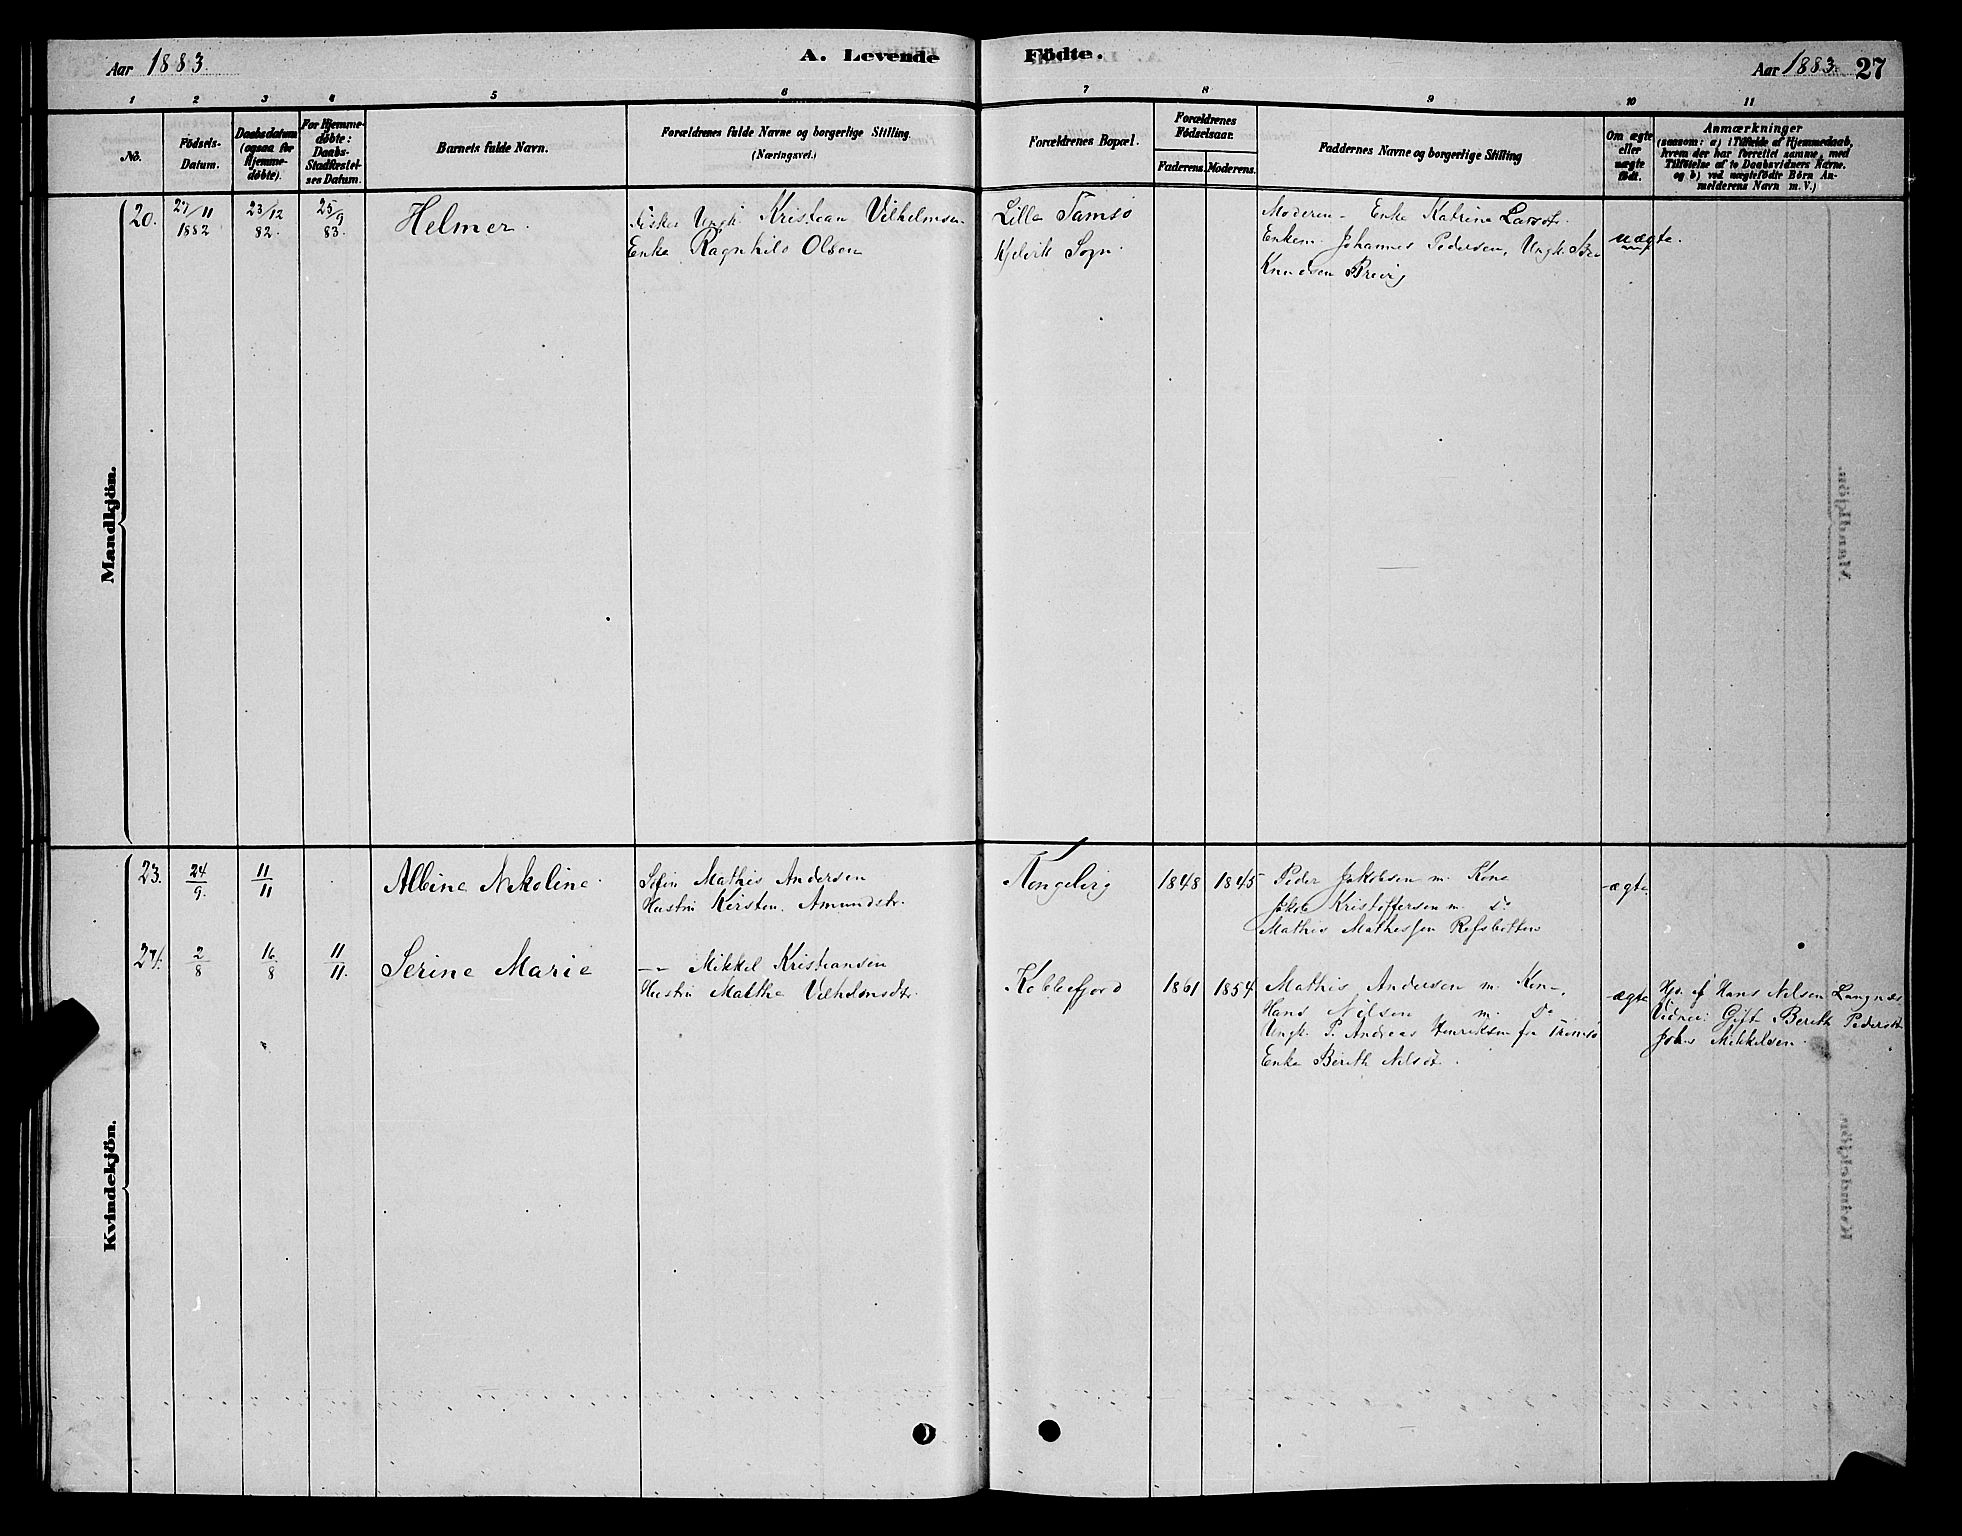 Aar 1883.
A. Levende Födte.
Aar 1883. 27
1 2 3 4 5 6 7 8 9 10 11
No.
Födsels-Datum.
Daabsdatum (ogsaa for Hjemme-döbte).
For Hjemme-döbte: Daabs-Stadfæstel-ses Datum.
Barnets fulde Navn.
Forældrenes fulde Navne og borgerlige Stilling. (Næringsvei.)
Forældrenes Bopæl.
Forældrenes Födselsaar.
Faderens. Moderens.
Faddernes Navne og borgerlige Stilling
Om ægte eller uægte födt.
Anmærkninger
(saasom: a) i Tilfælde af Hjemmedaab,
hvem der har forrettet samme, med
Tilföielse af to Daabsvidners Navne.
og b) ved uægtefödte Börn An-
melderens Navn m. V.)
Mandkjön.
20. 27/11 1882 23/12 82. 25/9 83. Helmer.
Fisker Ungk. Kristian Vilhelmsen
Enke Ragnhild Olsen
Lille Tamsö
Kjelvik Sogn.
Moderen - Enke Katrine Larsdtr.
Enkem. Johannes Pedersen, Ungk.
Knudsen Breivig
uægte.
Kvindekjön.
23. 24/9. 11/11 Albine Nikoline.
Sefin Mathis Andersen
Hustru Kirsten Amundsdtr.
Kongelvig
1848 1845
Peder Jakobsen m. Kone
Jakob Kristoffersen m. Do
Mathis Mathessen Refsbotten
ægte
24. 2/8 16/8 11/11. Serine Marie
-"- Mikkel Kristiansen
Hustru Malthe Vilhelmsdtr.
Kobbefjord
1861 1854
Mathis Andersen m. Kone,
Hans Nilsen m. Do
Ungk. P. Andreas Henriksen fra Tromsö
Enke Berith Nilsdt.
ægte
Hjd. af Hans Nilsen Langnæs
Vidner: Gift Berith Pedersdt
Johs Mikkelsen.